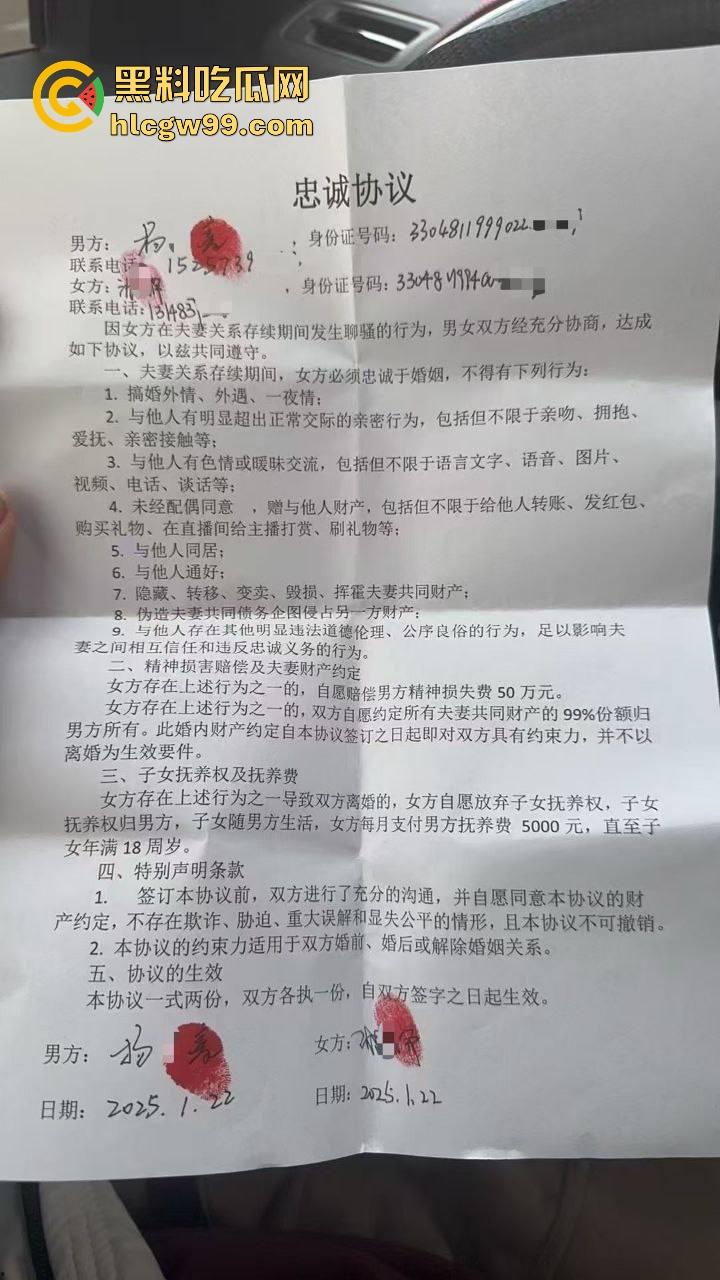 黑料吃瓜网
hlcgw99.com
忠诚协议
男方： 身份证号码：
联系电话：
女方： ，身份证号码：
联系电话：
因女方在夫妻关系存续期间发生聊骚的行为，男女双方经充分协商，达成
如下协议，以兹共同遵守。
一、夫妻关系存续期间，女方必须忠诚于婚姻，不得有下列行为：
1. 搞婚外情、外遇、一夜情；
2. 与他人有明显超出正常交际的亲密行为，包括但不限于亲吻、拥抱、
爱抚、亲密接触等；
3. 与他人有色情或暧昧交流，包括但不限于语言文字、语音、图片、
视频、电话、谈话等；
4. 未经配偶同意 ，赠与他人财产，包括但不限于给他人转账、发红包、
购买礼物、在直播间给主播打赏、刷礼物等；
5. 与他人同居；
6. 与他人通好；
7. 隐藏、转移、变卖、毁损、挥霍夫妻共同财产；
8. 伪造夫妻共同债务企图侵占另一方财产；
9. 与他人存在其他明显违法道德伦理、公序良俗的行为，足以影响夫
妻之间相互信任和违反忠诚义务的行为。
二、精神损害赔偿及夫妻财产约定
女方存在上述行为之一的，自愿赔偿男方精神损失费 50 万元。
女方存在上述行为之一的，双方自愿约定所有夫妻共同财产的 99%份额归
男方所有。此婚内财产约定自本协议签订之日起即对双方具有约束力，并不以
离婚为生效要件。
三、子女抚养权及抚养费
女方存在上述行为之一导致双方离婚的，女方自愿放弃子女抚养权，子女
抚养权归男方，子女随男方生活，女方每月支付男方抚养费 5000 元，直至子
女年满 18 周岁。
四、特别声明条款
1. 签订本协议前，双方进行了充分的沟通，并自愿同意本协议的财
产约定，不存在欺诈、胁迫、重大误解和显失公平的情形，且本协议不可撤销。
2. 本协议的约束力适用于双方婚前、婚后或解除婚姻关系。
五、协议的生效
本协议一式两份，双方各执一份，自双方签字之日起生效。
男方： 女方：
日期：2025.1.22 日期：2025.1.22